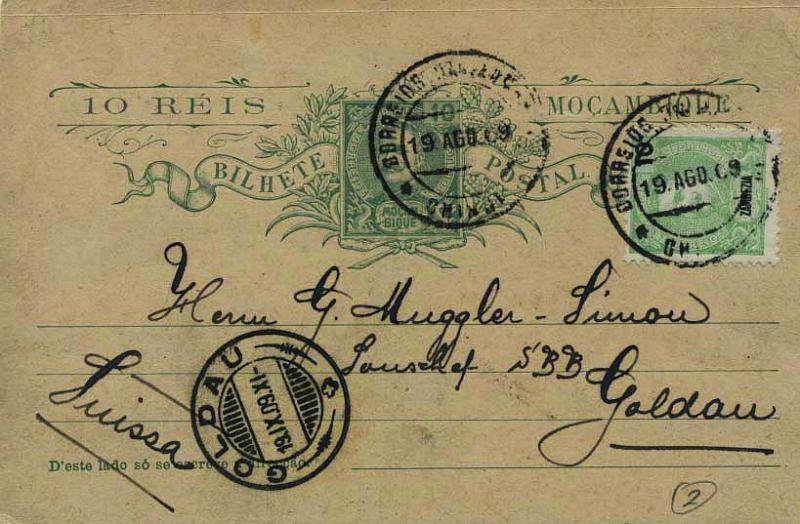 10 RÉIS
MOÇAMBIQUE
BILHETE POSTAL
10
MOÇAM
BIQUE
CORREIOS
19 AGO. 09
CORREIOS
19. AGO. 09
ZAMBEZIA
Herrn G. Muggler-Simon
Souschef SBB
Goldau
Suissa
GOLDAU
19.IX.09.XI-
D'este lado só se escreve a direcção.
2